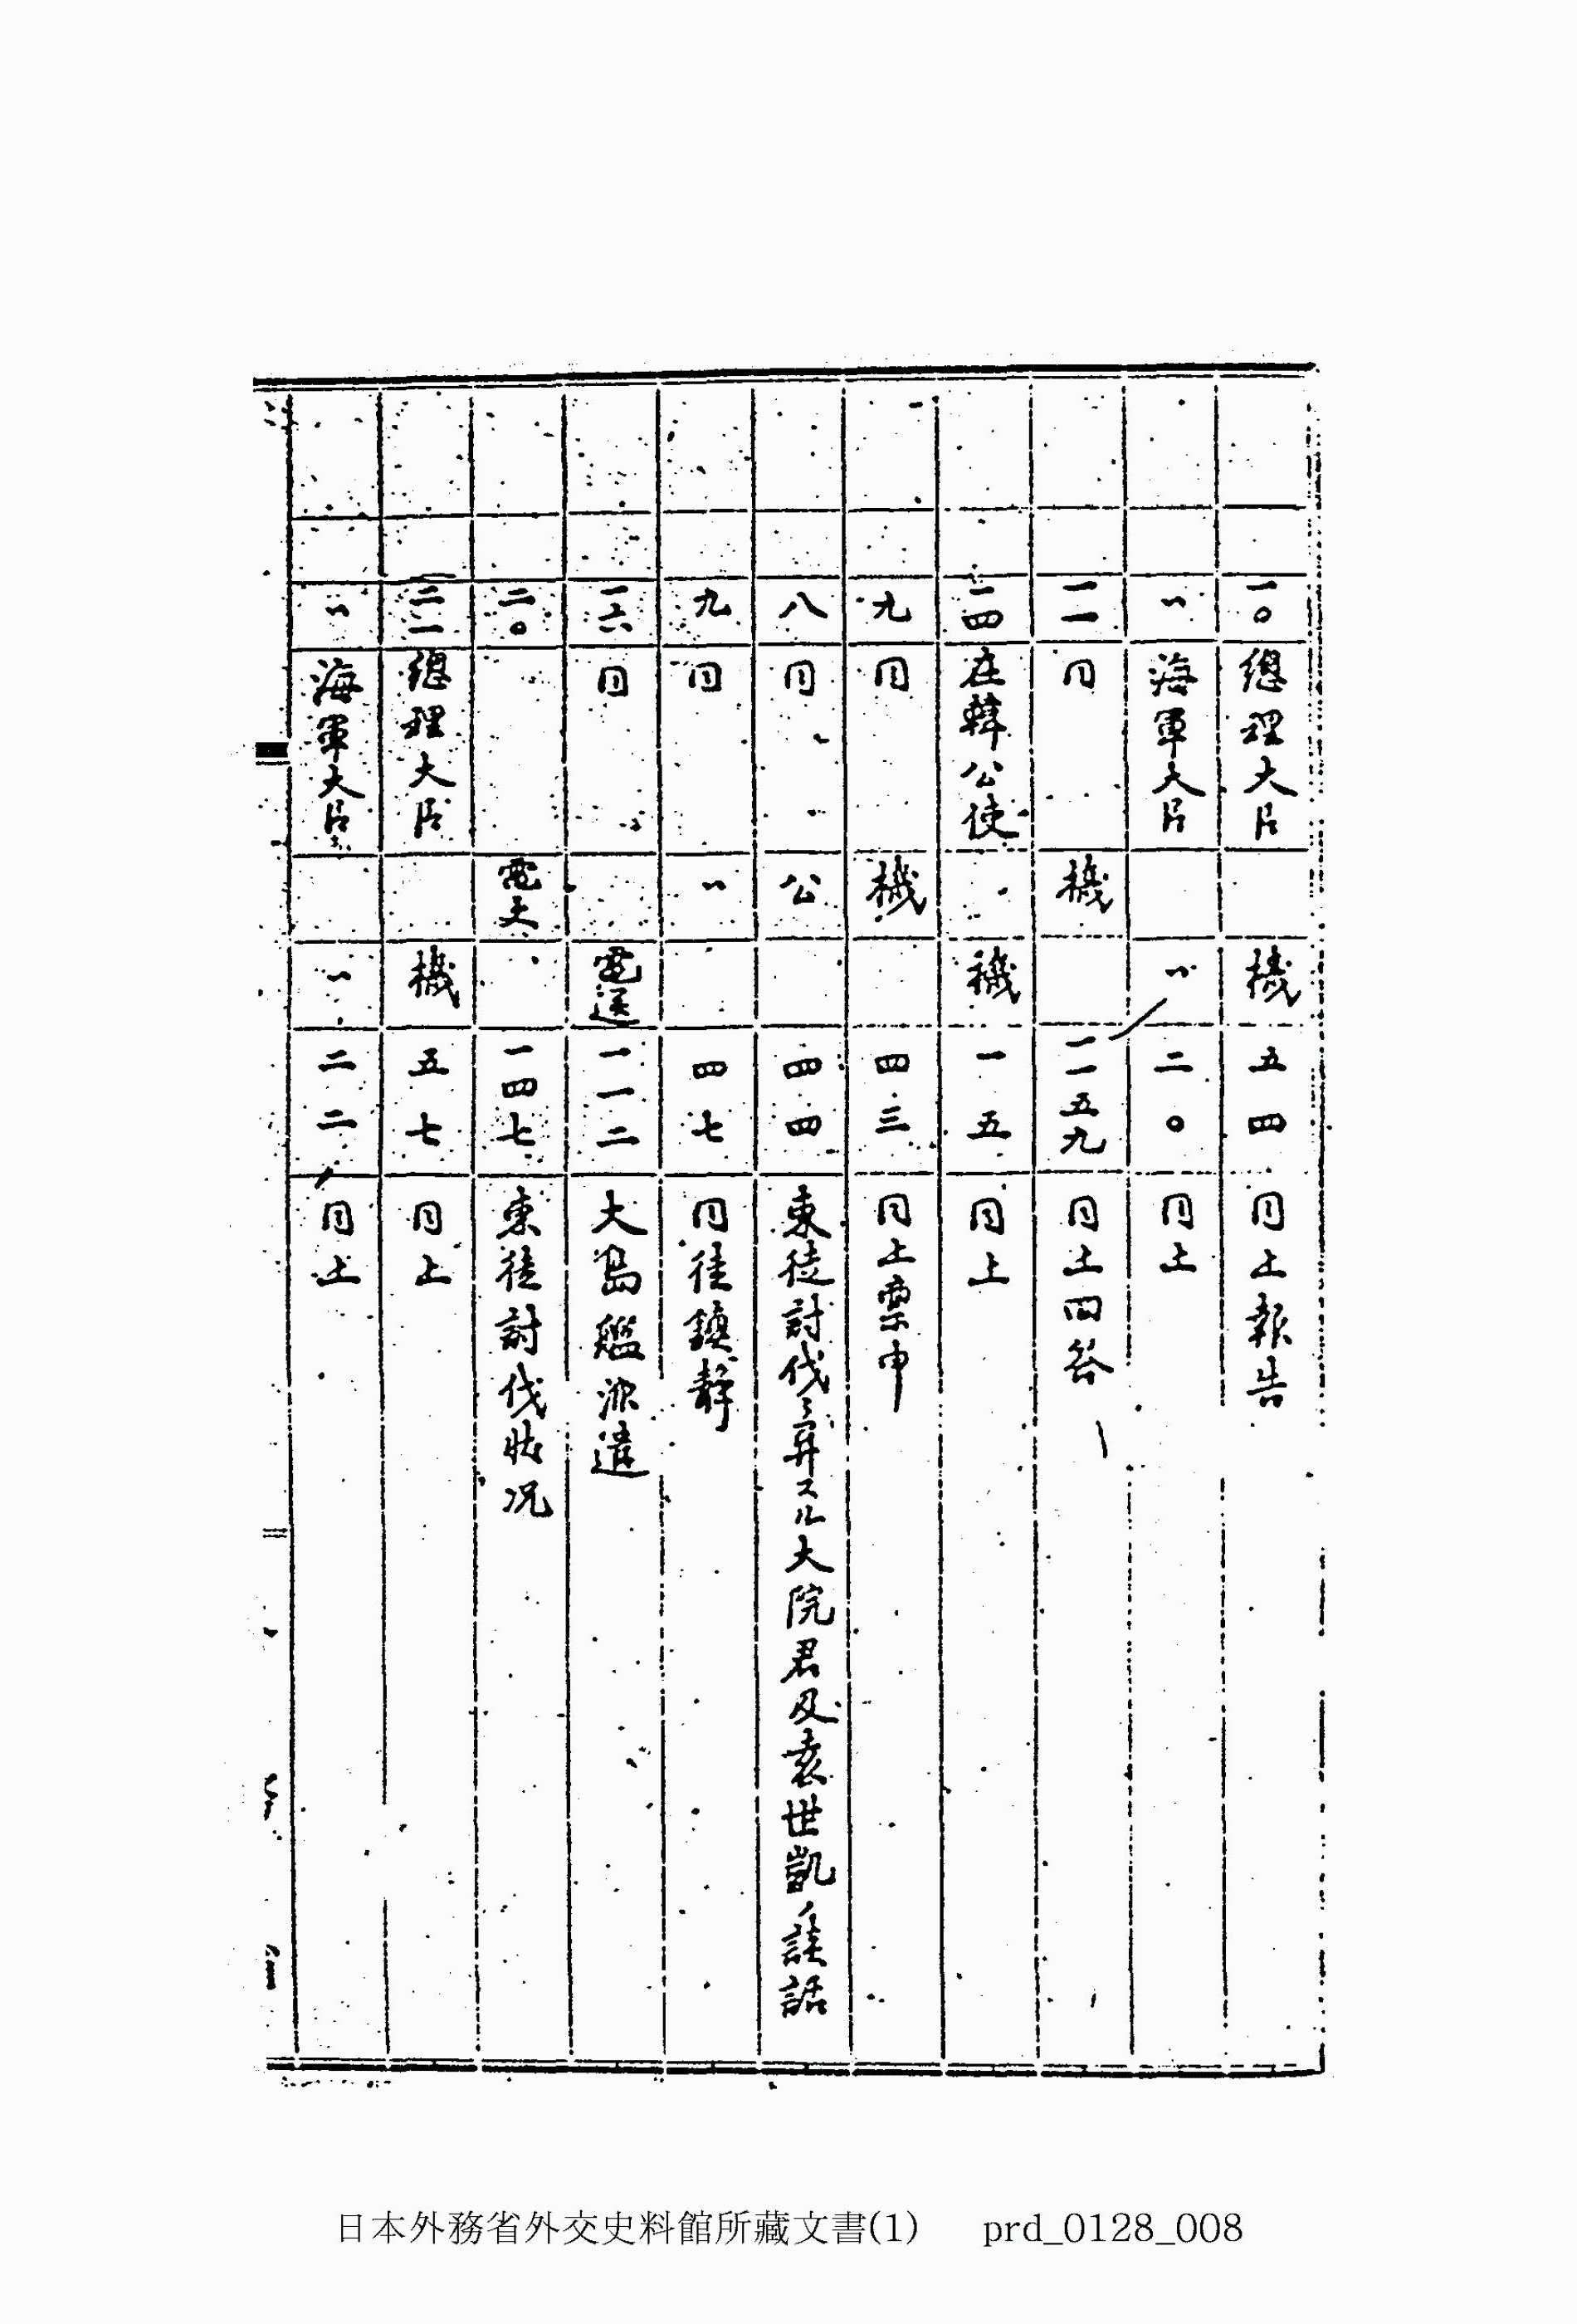 一〇 總理大臣 機 五四 同上報告
〃 海軍大臣 〃 二〇 同上
一一 同 機 一一五九 同上回答
一四 在韓公使 機 一五 同上
九 同 機 四三 同上稟申
八 同 公 四四 東徒討伐ニ関スル大院君及袁世凱ノ談話
九 同 〃 四七 同徒鎮静
一六 同 電送 一一二 大島艦派遣
二〇 電受 一四七 東徒討伐状況
二一 總理大臣 機 五七 同上
〃 海軍大臣 〃 二二 同上
日本外務省外交史料館所藏文書(1) prd_0128_008